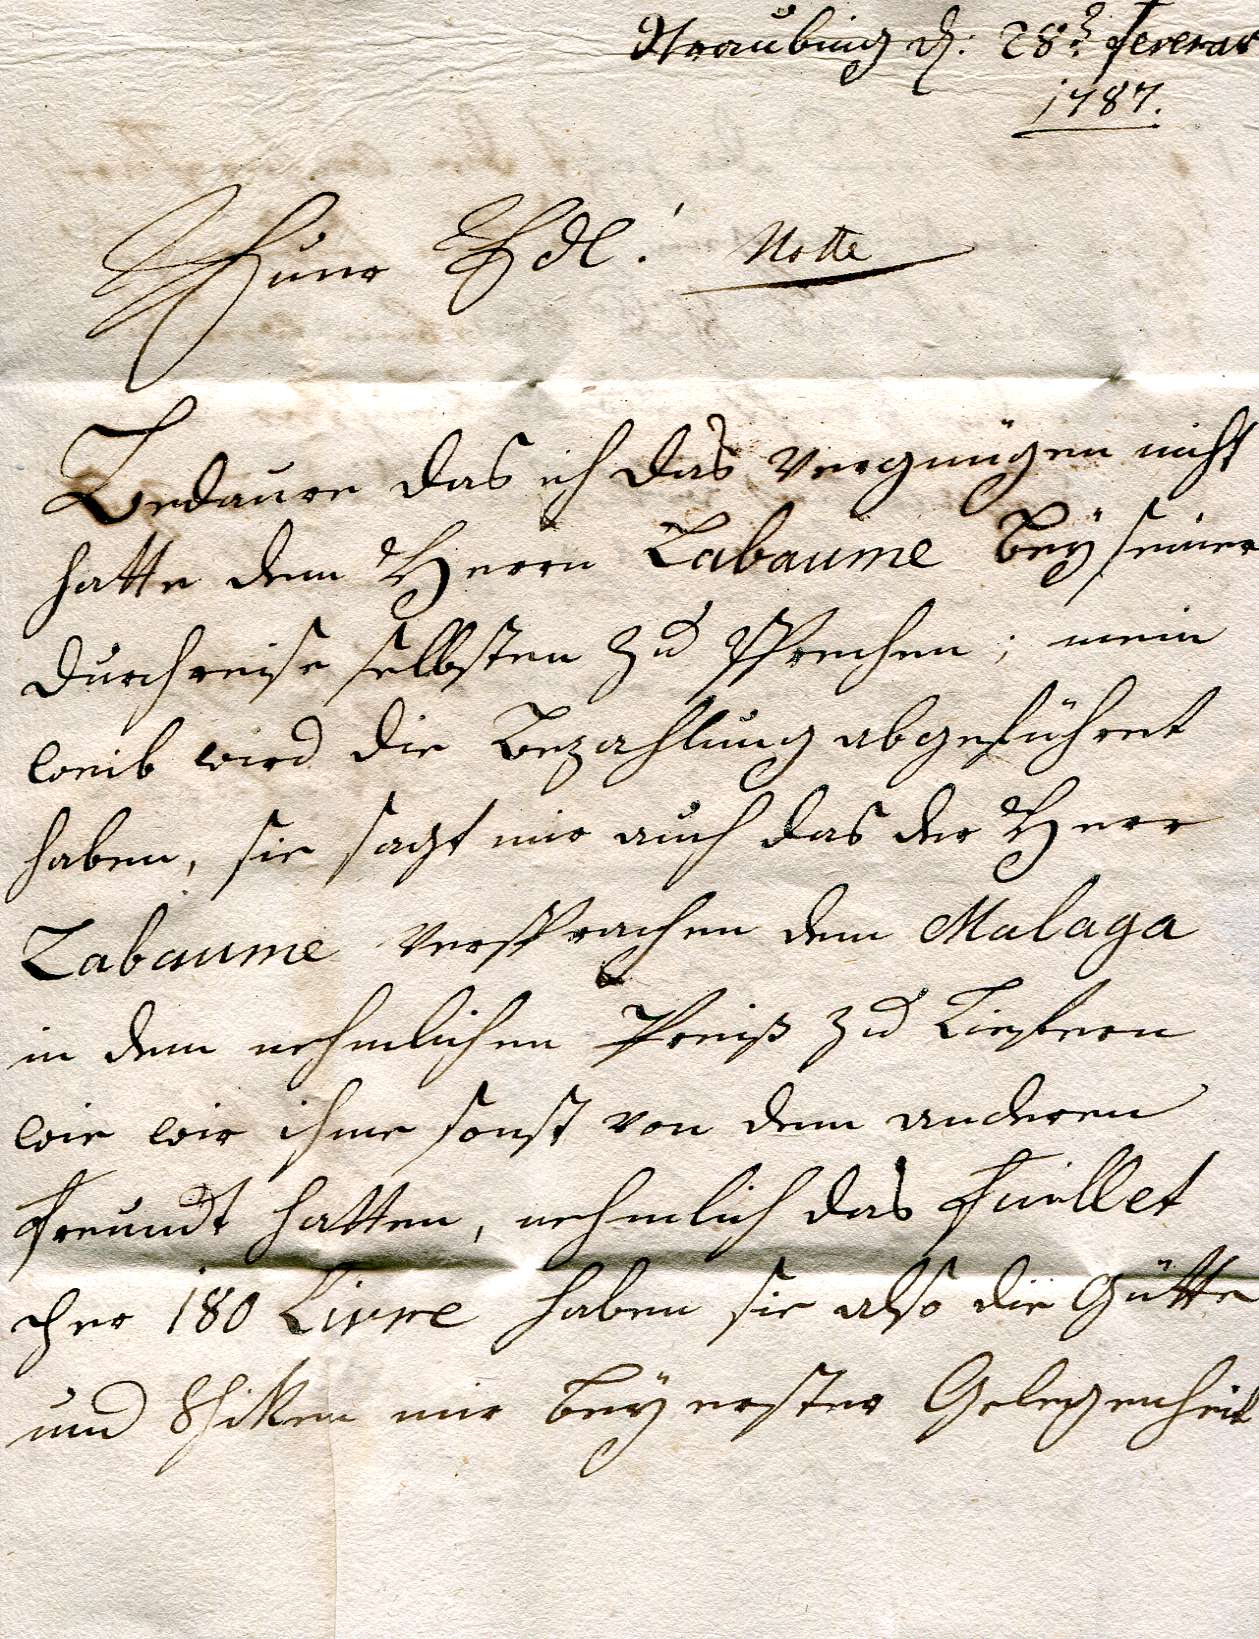 Straubing d: 28t Feverar
1787.
Euer Edl! Notte
Bedaure das ich das Vergnügen nicht
hatte dem Herrn Labaume beÿ seiner
durchreise selbsten zu sprechen; mein
weib wird die Bezahlung abgeführet
haben, sie sagt mir auch das der Herr
Labaume versprachen dem Malaga
in dem nehmlichen Preiß zu Liefern
wie wir ihme sonst von dem anderen
Freundt hatten, nehmlich das Fuillet
per 180 Livre haben sie also die Gütte
und schiken mir beÿ erster Gelegenheit